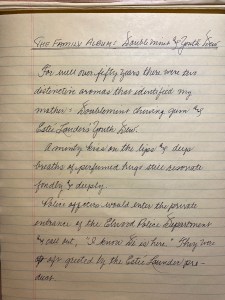 THE FAMILY ALBUM: Doublemint & Youth Dew
For well over fifty years there were two
distinctive aromas that identified my
mother: Doublemint chewing gum &
Estée Lauder's Youth Dew.
A minty kiss on the lips & deep
breaths of perfumed hugs still resonate
fondly & deeply.
Police officers would enter the private
entrance of the Elwood Police Department
& call out, "I know she is here." They were
greeted by the Estée Lauder pro-
duct.